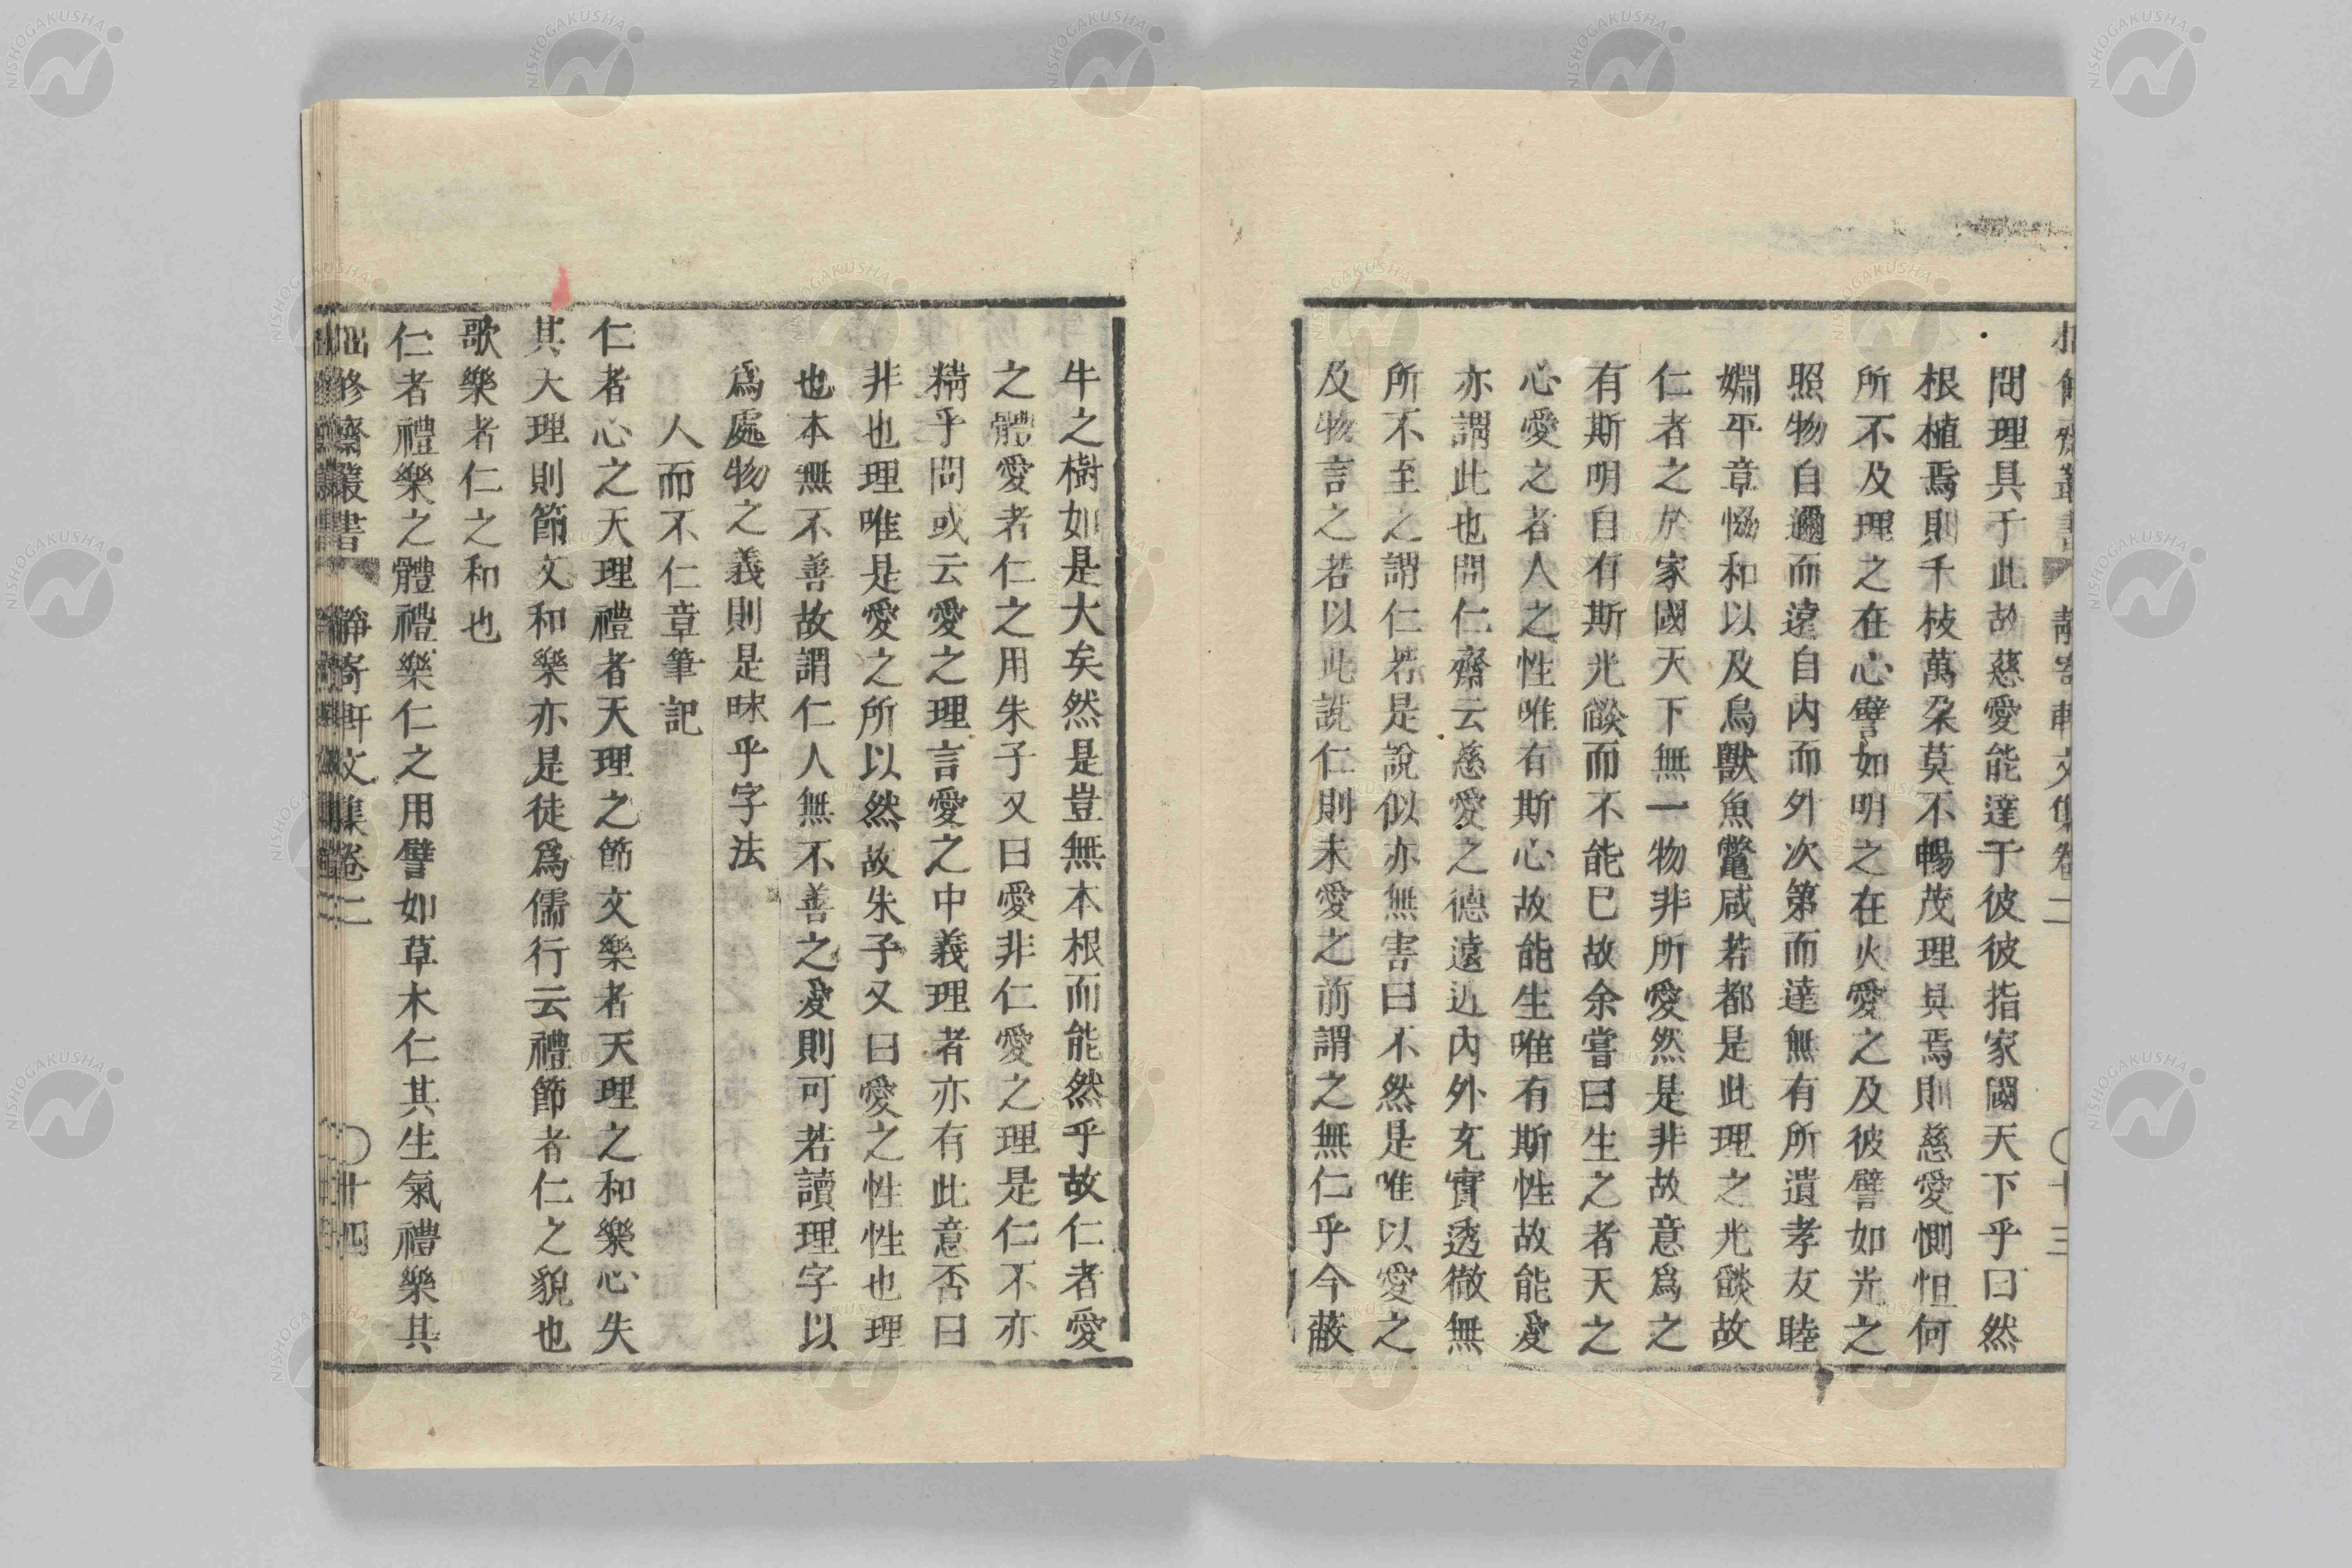 問理具于此故慈愛能達于彼彼指家國天下乎曰然
根植焉則千枝萬朶莫不暢茂理具焉則慈愛惻怛何
所不及理之在心譬如明之在火愛之及彼譬如光之
照物自邇而遠自內而外次第而達無有所遺孝友睦
婣平章恊和以及鳥獸魚鼈咸若都是此理之光燄故
仁者之於家國天下無一物非所愛然是非故意爲之
有斯明自有斯光燄而不能已故余嘗曰生之者天之
心愛之者人之性唯有斯心故能生唯有斯性故能愛
亦謂此也問仁齋云慈愛之德遠近內外充實透徹無
所不至之謂仁若是說似亦無害曰不然是唯以愛之
及物言之若以此說仁則未愛之前謂之無仁乎今蔽
牛之樹如是大矣然是豈無本根而能然乎故仁者愛
之體愛者仁之用朱子又曰愛非仁愛之理是仁不亦
精乎問或云愛之理言愛之中義理者亦有此意否曰
非也理唯是愛之所以然故朱子又曰愛之性性也理
也本無不善故謂仁人無不善之愛則可若讀理字以
爲處物之義則是昧乎字法
人而不仁章筆記
仁者心之天理禮者天理之節文樂者天理之和樂心失
其大理則節文和樂亦是徒爲儒行云禮節者仁之貌也
歌樂者仁之和也
仁者禮樂之體禮樂仁之用譬如草木仁其生氣禮樂其
修齋叢書 靜寄軒文集卷二 〇十四